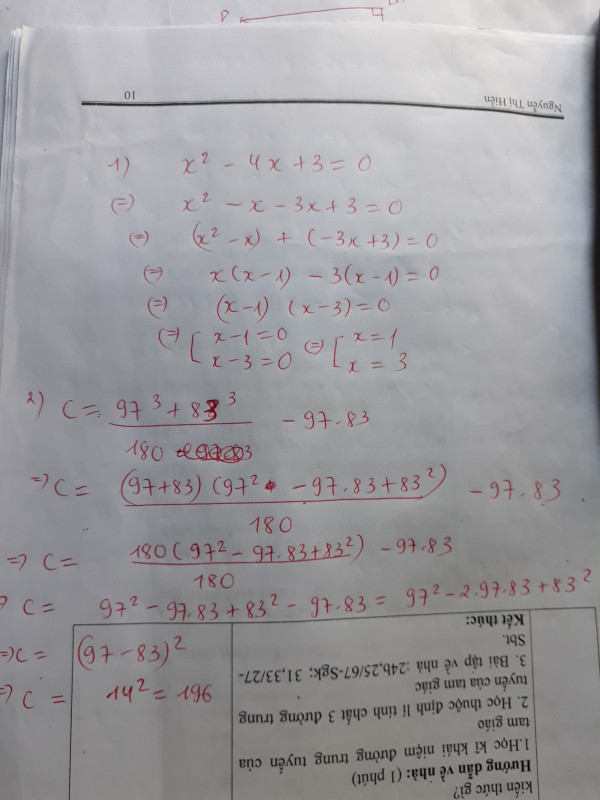 P
Nguyễn Thị Hiền 10
1) x² - 4x + 3 = 0
(=) x² - x - 3x + 3 = 0
(=) (x² - x) + (-3x + 3) = 0
(=) x(x - 1) - 3(x - 1) = 0
(=) (x - 1) (x - 3) = 0
(=) [ x - 1 = 0 (=) [ x = 1
x - 3 = 0 x = 3
2) C = 97³ + 83³ / 180 - 97.83
=> C = (97 + 83) (97² - 97.83 + 83²) / 180 - 97.83
=> C = 180 (97² - 97.83 + 83²) / 180 - 97.83
=> C = 97² - 97.83 + 83² - 97.83 = 97² - 2.97.83 + 83²
=> C = (97 - 83)²
=> C = 14² = 196
kiến thức gì?
Hướng dẫn về nhà: (1 phút)
1. Học kĩ khái niệm đường trung tuyến của
tam giáo
2. Học thuộc định lí tính chất 3 đường trung
tuyến của tam giác
3. Bài tập về nhà :24b,25/67-Sgk; 31,33/27-
Sbt.
Kết thúc: